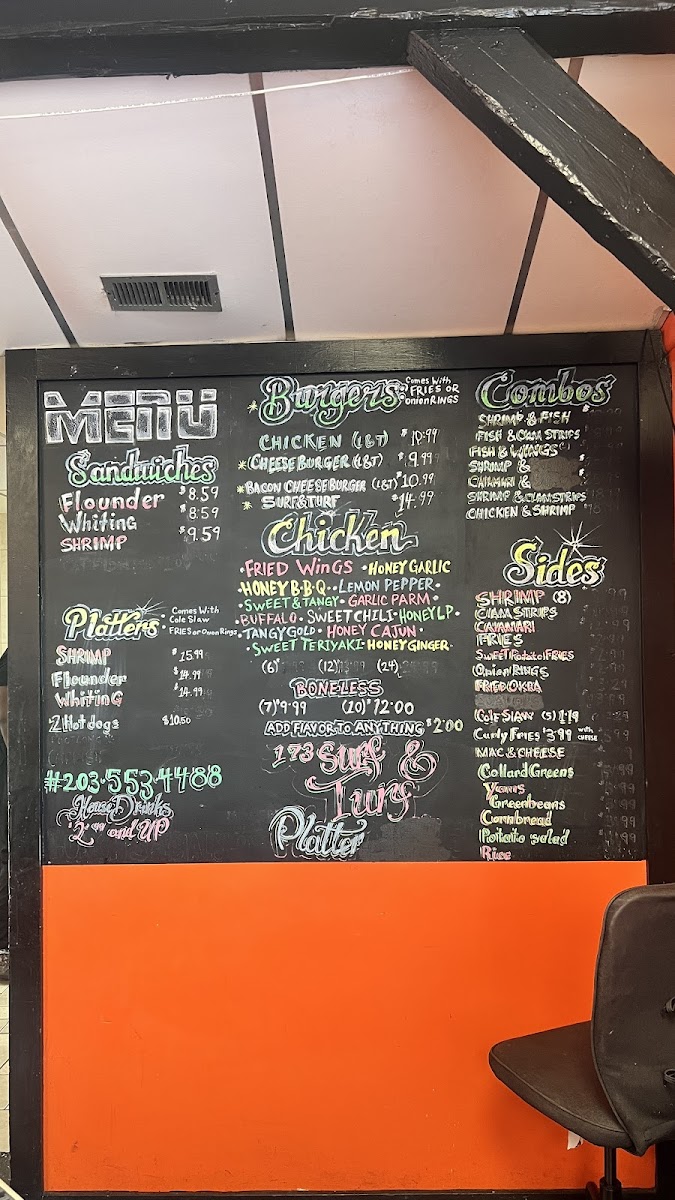 MENU
Sandwiches
Flounder $8.59
Whiting $8.59
SHRIMP $9.59
Platters Comes With Cole Slaw FRIES or Onion Rings
SHRIMP $15.99
Flounder $14.99
Whiting $14.99
2 Hot dogs $10.50
#203-553-4488
House Drinks
$2.00 and UP
*Burgers: Comes With FRIES OR onion RINGS
CHICKEN (L&T) $10.99
*CHEESE BURGER (L&T) $9.99
*BACON CHEESE BURGER (L&T) $10.99
* SURF & TURF $14.99
Chicken
•FRIED WINGS •HONEY GARLIC
•HONEY B-B-Q• •LEMON PEPPER•
•SWEET & TANGY• GARLIC PARM•
•BUFFALO• SWEET CHILI• HONEY L.P•
•TANGY GOLD• HONEY CAJUN•
•SWEET TERIYAKI• HONEY GINGER•
(6) (12) (24)
BONELESS
(7) $9.99 (10) $12.00
ADD FLAVOR TO ANYTHING $2.00
173 Surf &
Turf
Platter
Combos
SHRIMP & FISH
FISH & CLAM STRIPS
FISH & WINGS
SHRIMP &
CALAMARI &
SHRIMP & CLAM STRIPS
CHICKEN & SHRIMP
Sides
SHRIMP (8)
CLAM STRIPS
CALAMARI
FRIES
Sweet Potato FRIES
Onion RINGS
FRIED OKRA
Cole SLAW (5) 1.19
Curly Fries $3.99 with CHEESE
MAC & CHEESE
Collard Greens
Yams
Greenbeans
Cornbread
Potato salad
Rice